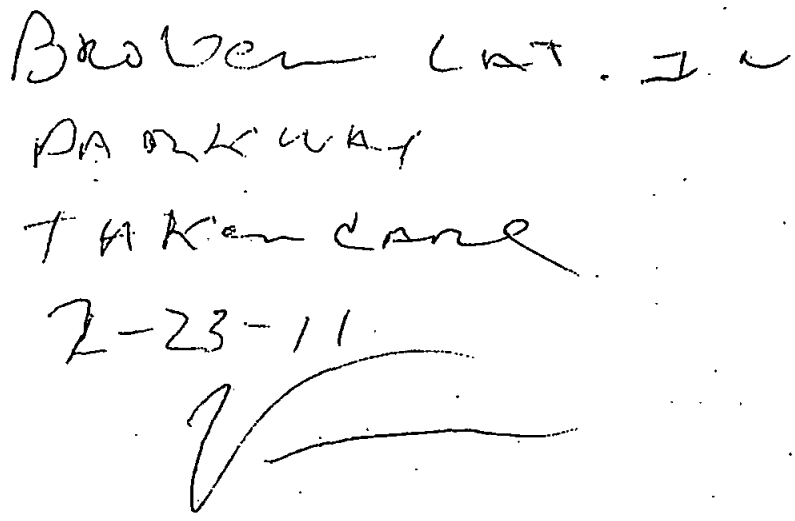 Broken LAT. IN
PARKWAY
TAKEN CARE
2-23-11